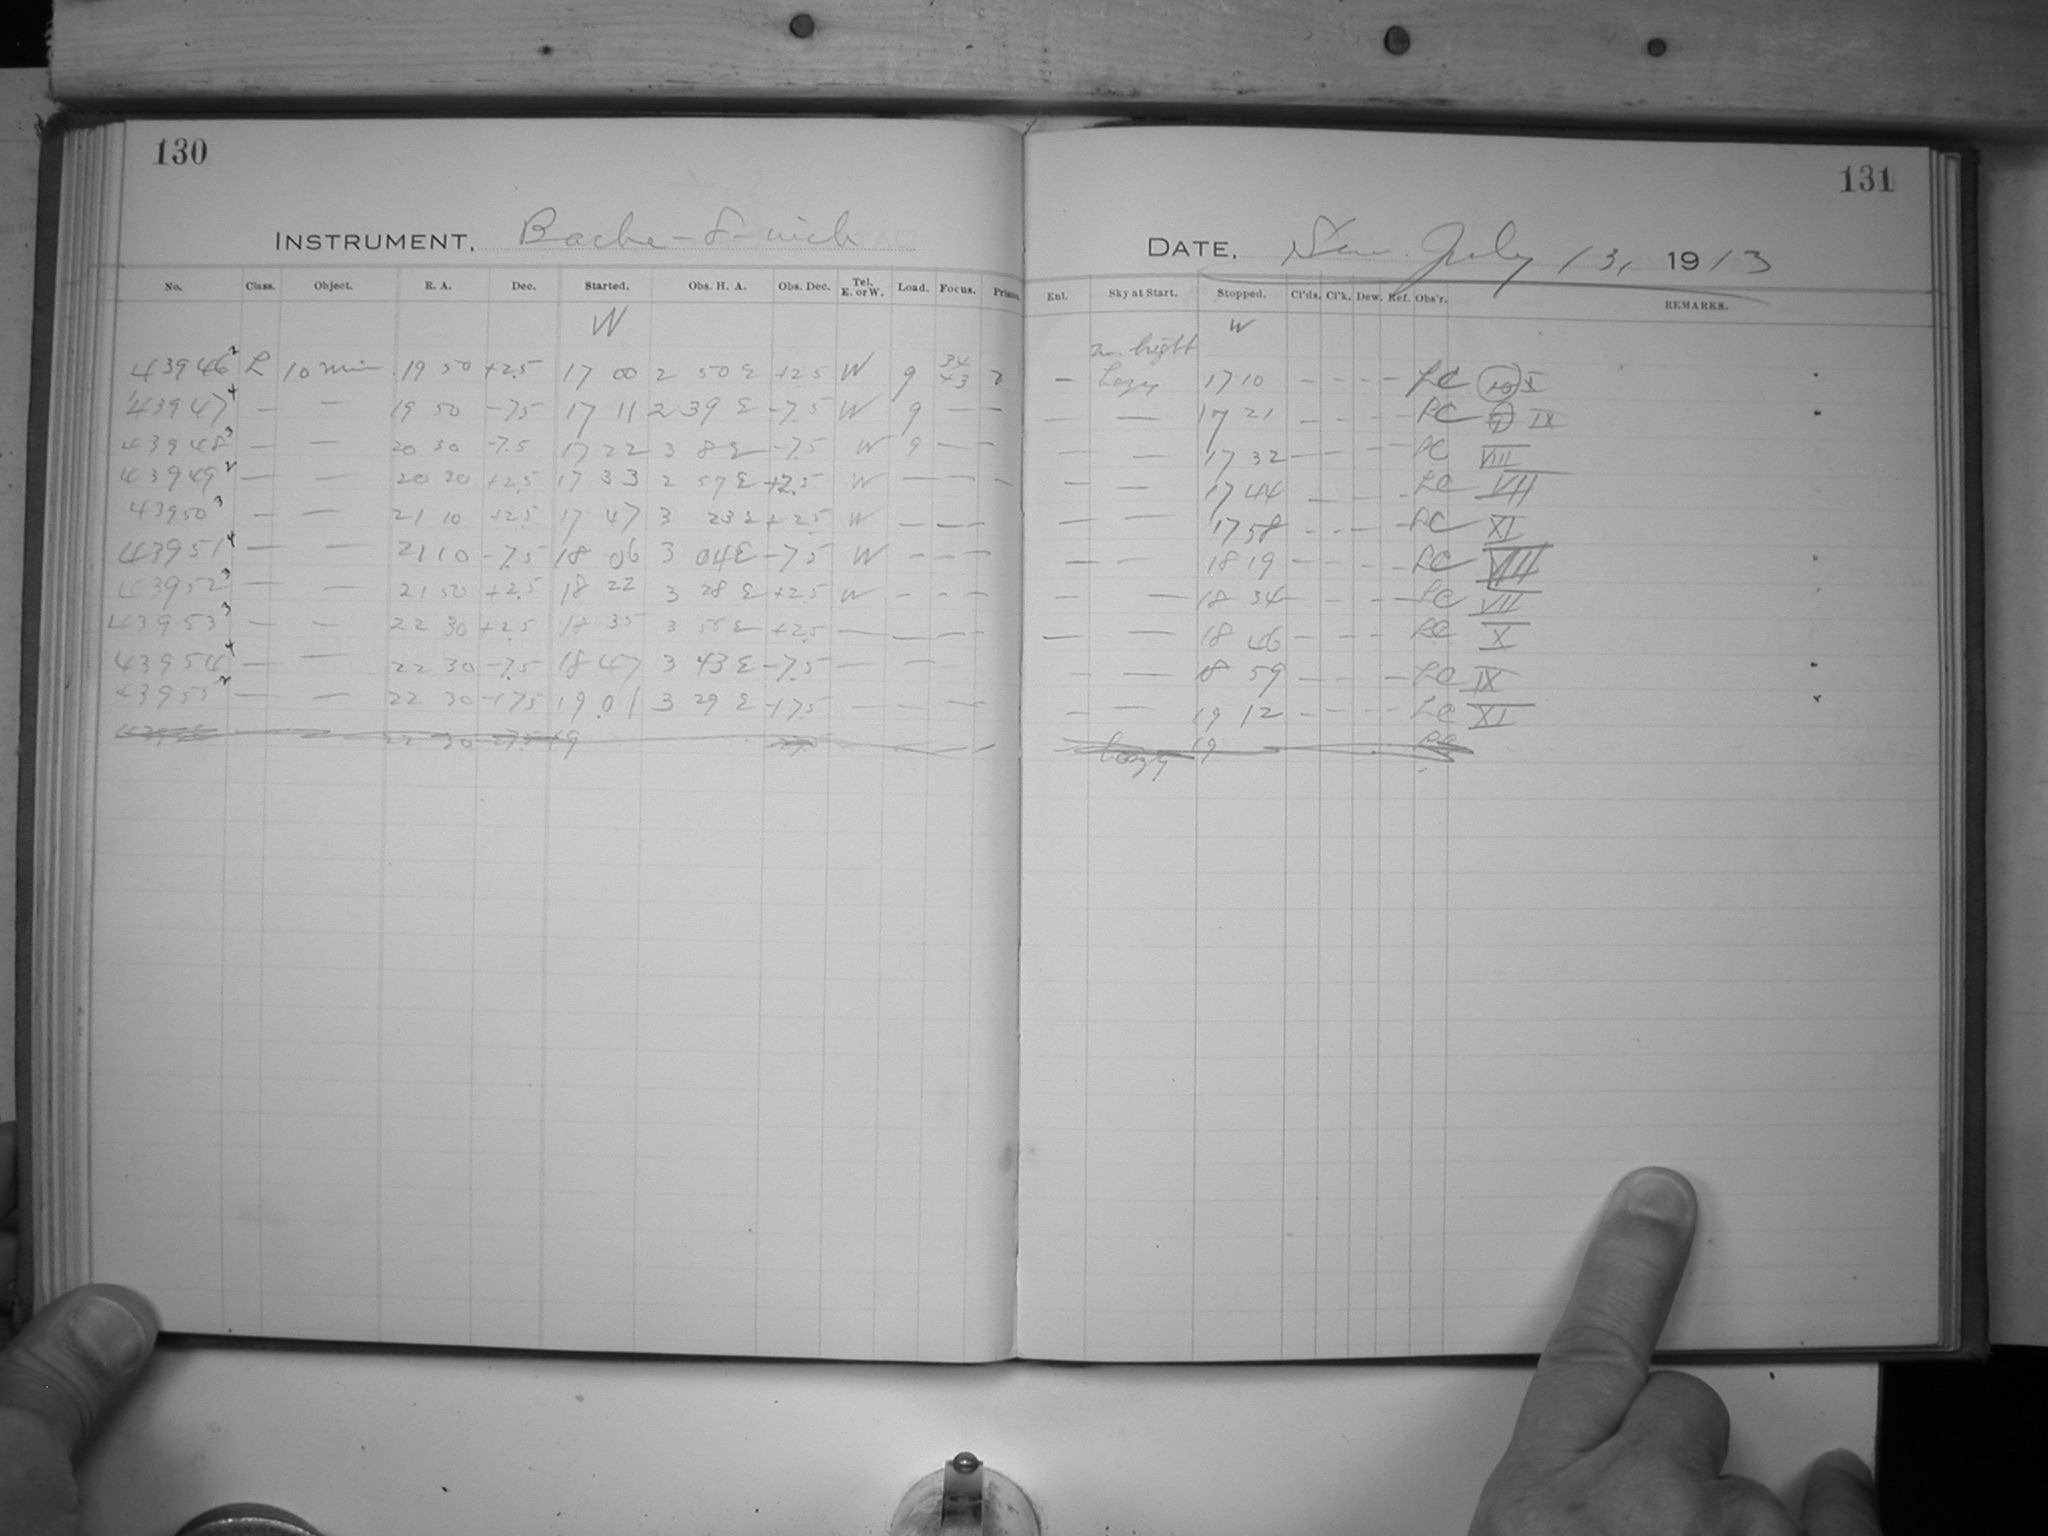 130
INSTRUMENT, Bache-8-inch
No. Class. Object. R. A. Dec. Started. Obs. H. A. Obs. Dec. Tel. E. or W. Load. Focus. Prisms
W
43946 2 L 10 min 19 50 +2.5 17 00 2 50 E +2.5 W 9 34 43 2
43947 4 — — 19 50 -7.5 17 11 2 39 E -7.5 W 9 — —
43948 3 — — 20 30 -7.5 17 22 3 8 E -7.5 W 9 — —
43949 2 — — 20 30 +2.5 17 33 2 57 E +2.5 W — — —
43950 3 — — 21 10 +2.5 17 47 3 23 E +2.5 W — — —
43951 4 — — 21 10 -7.5 18 06 3 04 E -7.5 W — — —
43952 3 — — 21 50 +2.5 18 22 3 28 E +2.5 W — — —
43953 3 — — 22 30 +2.5 18 35 3 55 E +2.5 — — — —
43954 4 — — 22 30 -7.5 18 47 3 43 E -7.5 — —
43955 2 — — 22 30 -17.5 19 01 3 29 E -17.5 — — — —
22 30 -27.5 19
131
DATE, Sun. July 13, 1913
Enl. Sky at Start. Stopped. Cl'ds. Cl'k. Dew. Ref. Obs'r. REMARKS.
W
bright
— hazy 17 10 — — — — LC 10 X
— — 17 21 LC 9 IX
— — 17 32 — — — — LC VIII
— — 17 44 — — — — LC VII
— — 17 58 — — — — LC XI
— — 18 19 — — — — LC VIII
— — 18 34 — — — — LC VII
— — 18 46 — — — LC X
— — 18 59 — — — — LC IX
— — 19 12 — — — — LC XI
hazy 19